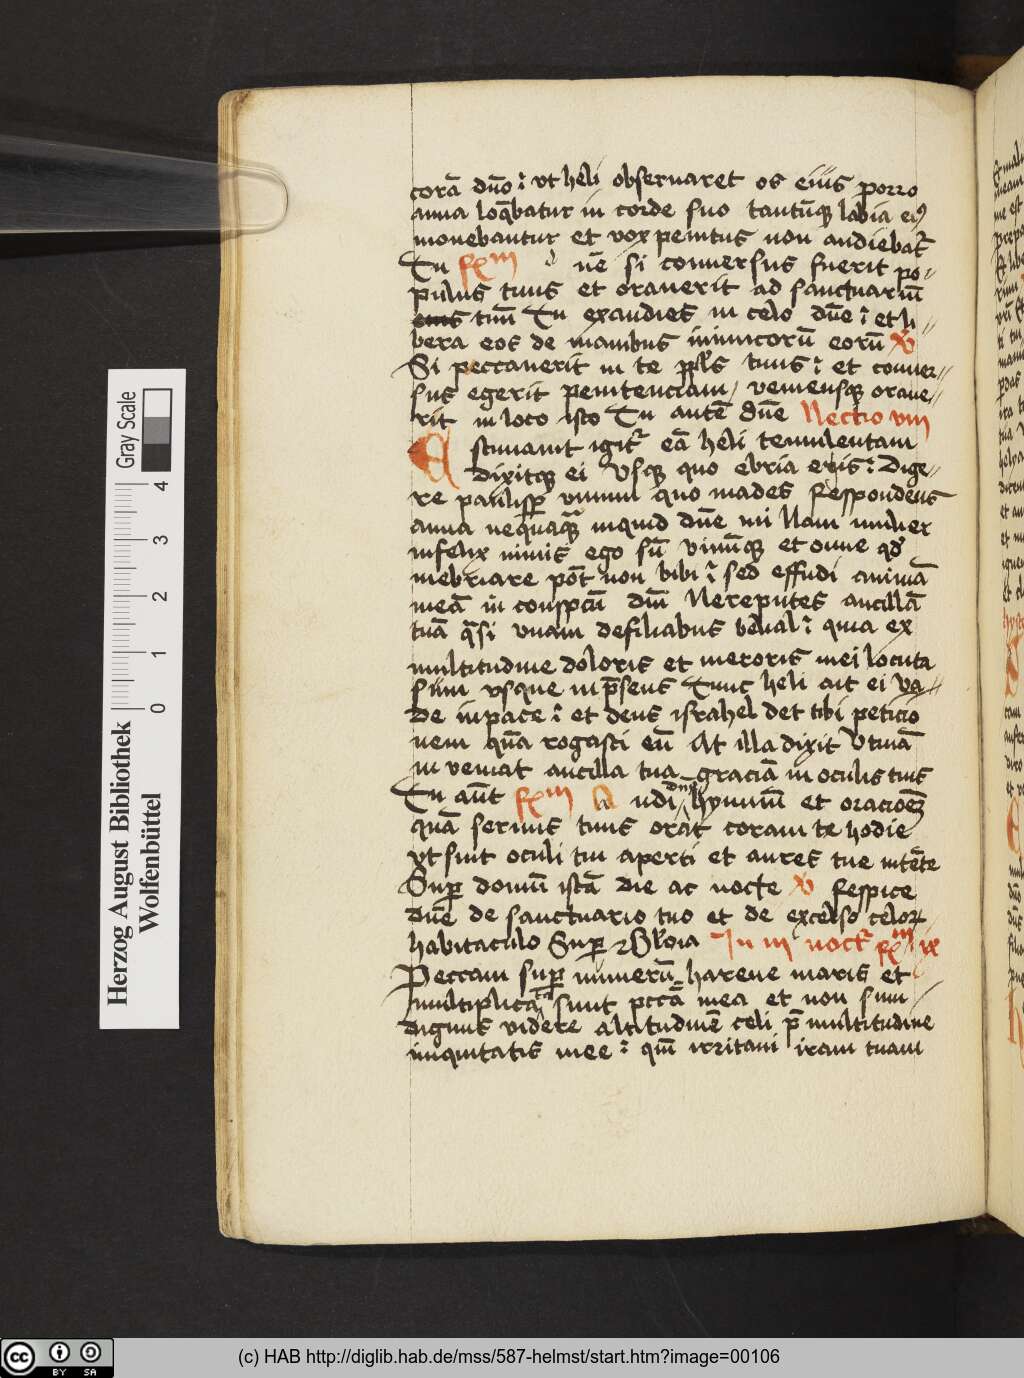 corā dn̄o ⁊ vt heli obseruaret os eius porro
anna loq̄batur in corde suo tantūq; labia ei9
monebantur et vox penitus non audiebat᷑
In fxm dn̄e si conuersus fuerit po-
pulus tuus et orauerit ad sanctuariū
tuū Tu exaudies in celo dn̄e ⁊ et li=
bera eos de manibus inimicorū eorū
Si peccauerit in te ppl̄s tuus ⁊ et conuer=
sus egerit penitenciam / veniensq; oraue=
rit in loco isto Tu autē dn̄e Lectio viii
Estimauit igit᷑ eā heli temulentam
dixitq; ei Vsq; quo ebria eris ⁊ Dige=
re paulisper vinum quo mades Respondens
anna nequaquā inquid dn̄e mi Nam mulier
infelix nimis ego sū vinūq; et omne qd̄
inebriare pōt non bibi ⁊ sed effudi animā
meā in conspcū dn̄i Ne reputes ancillā
tuā q̄si vnam de filiabus belial ⁊ quia ex
multitudine doloris et meroris mei locuta
sum vsque in p̄sens Tunc heli ait ei Va=
de in pace ⁊ et deus israhel det tibi peticio
nem quā rogasti eū At illa dixit Vtinā
in veniat ancilla tua graciā in oculis tuis
Tu aūt fxm A udi dn̄e hymnū et oracioē
quā seruus tuus orat coram te hodie
vt sint oculi tui aperti et aures tue intēte
Super domū istā die ac nocte Respice
dn̄e de sanctuario tuo et de excelso celoꝝ
habitaculo Super Gloria In iii noct᷑ ix
Peccaui super numerū harene maris et
multiplicata sunt pccā mea et non sum
dignus videre altitudinē celi p̄ multitudine
iniquitatis mee ⁊ qm̄ irritaui iram tuam
Herzog August Bibliothek
Wolfenbüttel
Gray Scale
0 1 2 3 4
(c) HAB http://diglib.hab.de/mss/587-helmst/start.htm?image=00106
cc BY SA